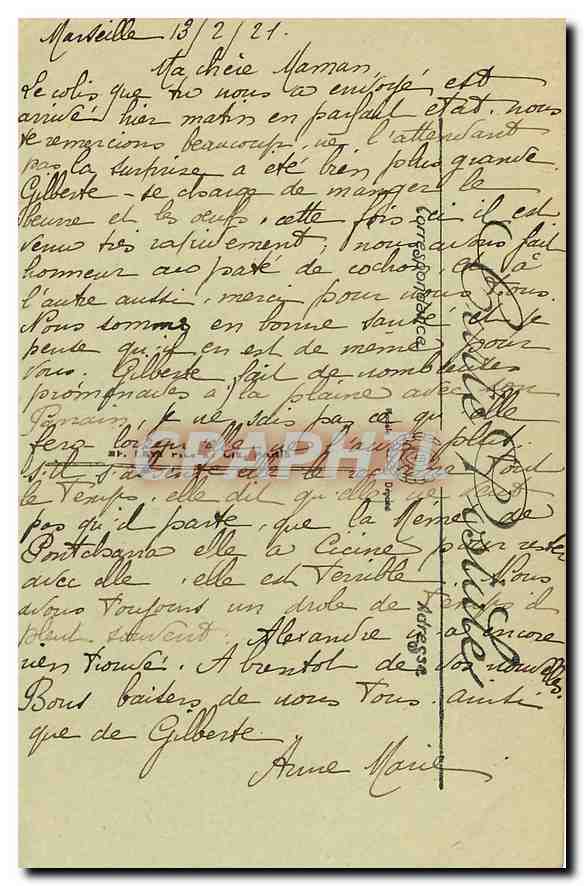 Marseille 13/2/21.
Ma chère Maman,
Le colis que tu nous a envoyé est
arrivé hier matin en parfait état. nous
te remercions beaucoup, ne l'attendant
pas la surprise a été bien plus grande.
Gilberte se charge de manger le
beurre et les oeufs, cette fois ci il est
venu très rapidement, nous avons fait
honneur au paté de cochon, et à
l'autre aussi, merci pour nous tous.
Nous sommes en bonne santé et je
pense qu'il en est de meme pour
vous. Gilberte fait de nombreuses
promenades à la plaine avec son
Parrain, je ne sais pas ce qu'elle
fera lorsqu'elle ne l'aura plus.
s'il s'absente elle le réclame tout
le Temps, elle dit qu'elle ne veut
pas qu'il parte, que la Mémé de
Pontcharra elle a Cicine pour rester
avec elle, elle est Terrible. Nous
avons Toujours un drole de Temps il
pleut souvent. Alexandre a encore
rien Trouvé. A bientot de vos nouvelles.
Bons baisers de nous Tous. ainsi
que de Gilberte
Anne Marie
Carte Postale
Correspondance
Adresse
CPAPHIL